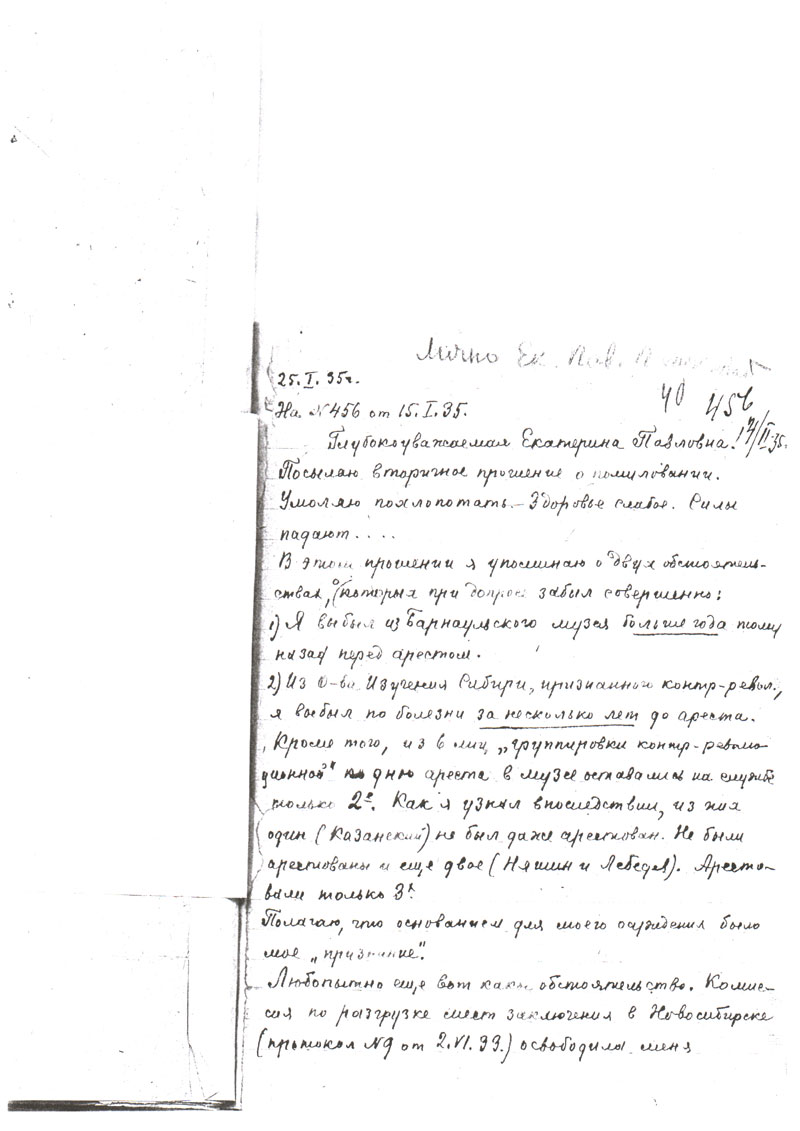 Лично Ек. Пав.
25.I.35г.
40 456
На №456 от 15.I.35.
17/II 35.
Глубокоуважаемая Екатерина Павловна!
Посылаю вторичное прошение о помиловании.
Умоляю похлопотать – Здоровье слабое. Силы
падают....
В этом прошении я упоминаю о двух обстоятель-
ствах, (которыя при допросе забыл совершенно:
1) Я выбыл из Барнаульского музея больше года тому
назад перед арестом.
2) Из О-ва Изучения Сибири, признанного контр-револ.,
я выбыл по болезни за несколько лет до ареста.
Кроме того, из 6 лиц „группировки контр-револю-
ционной" ко дню ареста в музее оставались на службе
только 2е. Как я узнал впоследствии, из них
один (Казанский) не был даже арестован. Не были
арестованы и еще двое (Няшин и Лебедев). Аресто-
вали только 3х
Полагаю, что основанием для моего осуждения было
мое „признание".
Любопытно еще вот какое обстоятельство. Комис-
сия по разгрузке мест заключения в Новосибирске
(протокол №9 от 2.VI.33.) освободила меня